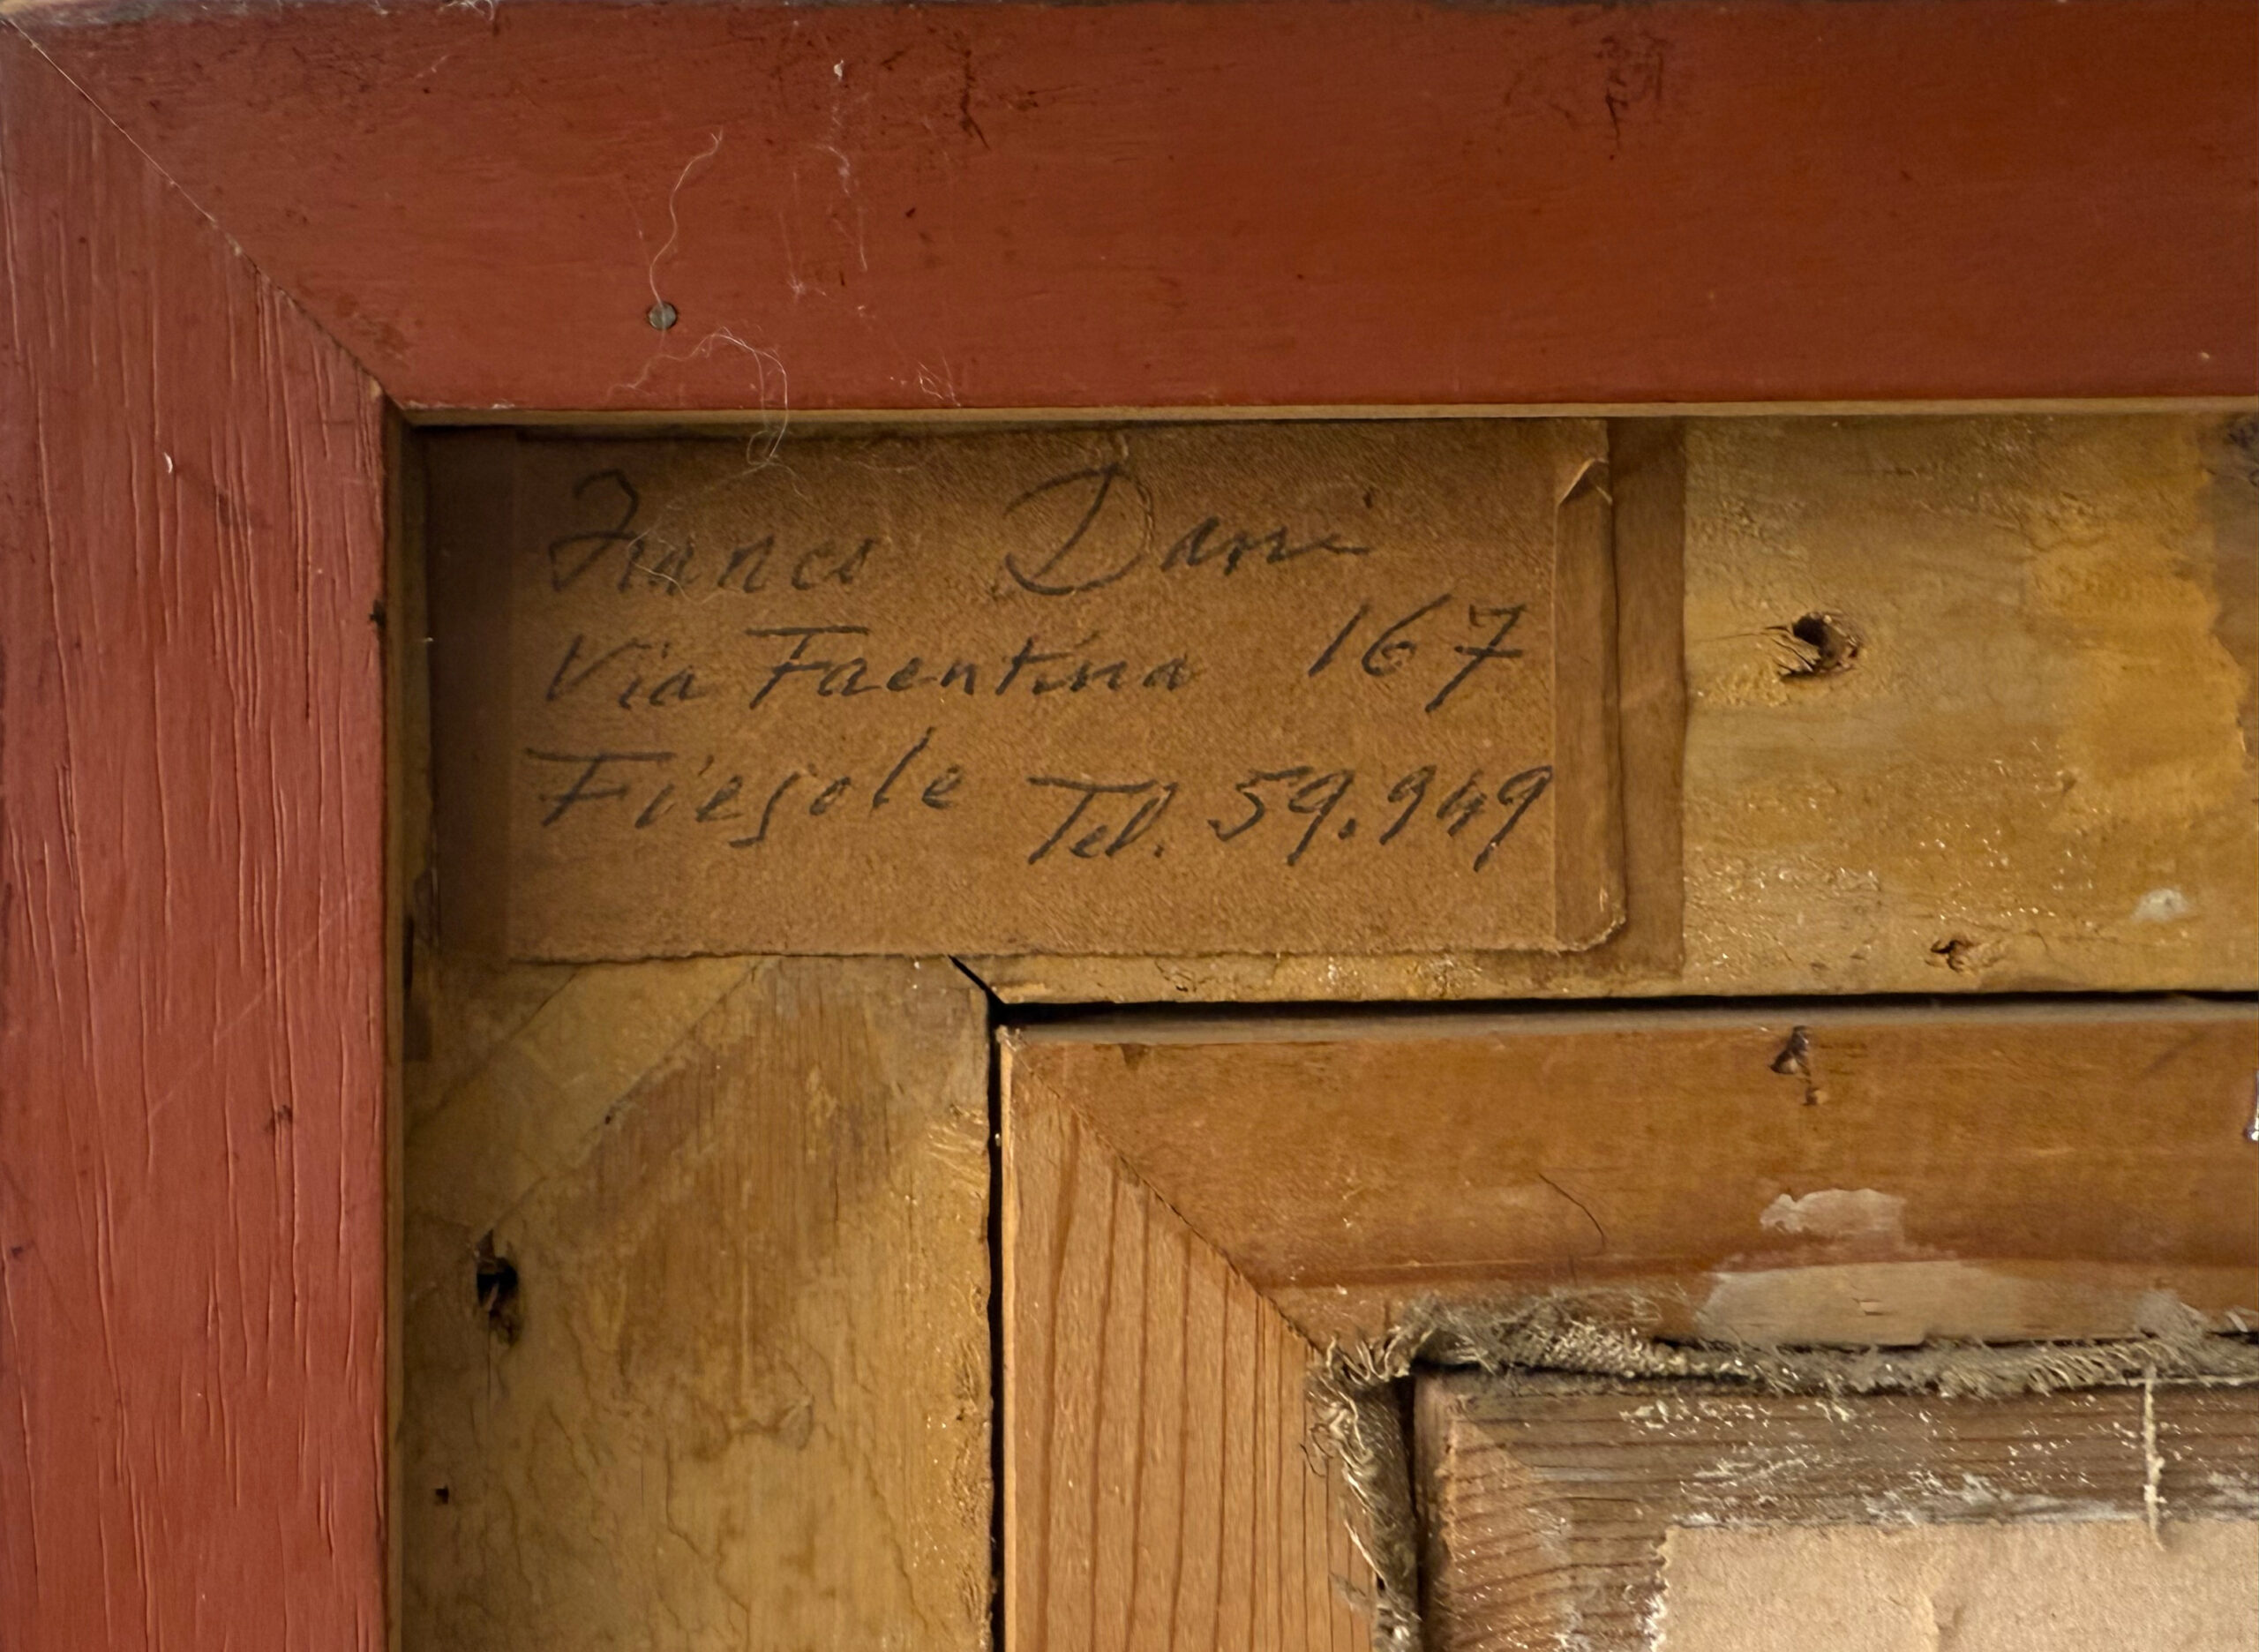 Franco Dani
Via Faentina 167
Fiesole Tel. 59.949